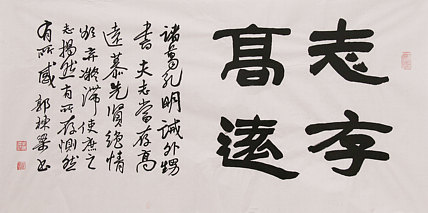 志存
高遠
諸葛孔明誡外甥
書夫志當存高
遠慕先賢絕情
欲弃凝滯使庶之
志揭然有所存惻然
有所感 郭 書